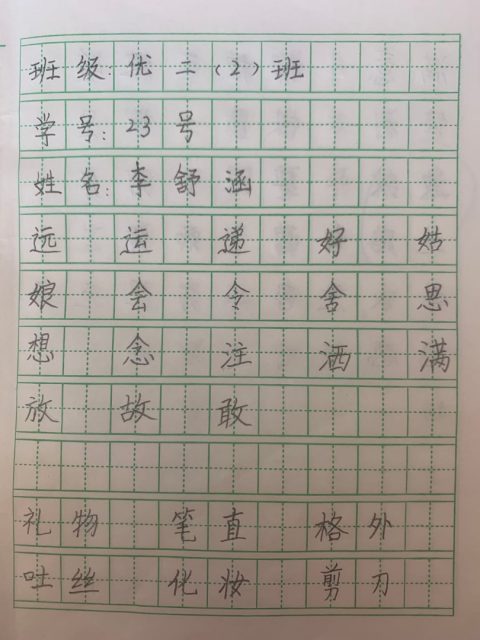 班级:优二(2)班
学号:23号
姓名:李舒涵
远 运 递 好 姑
娘 会 令 舍 思
想 念 注 洒 满
放 故 敢
礼物 笔直 格外
吐丝 化妆 剪刀